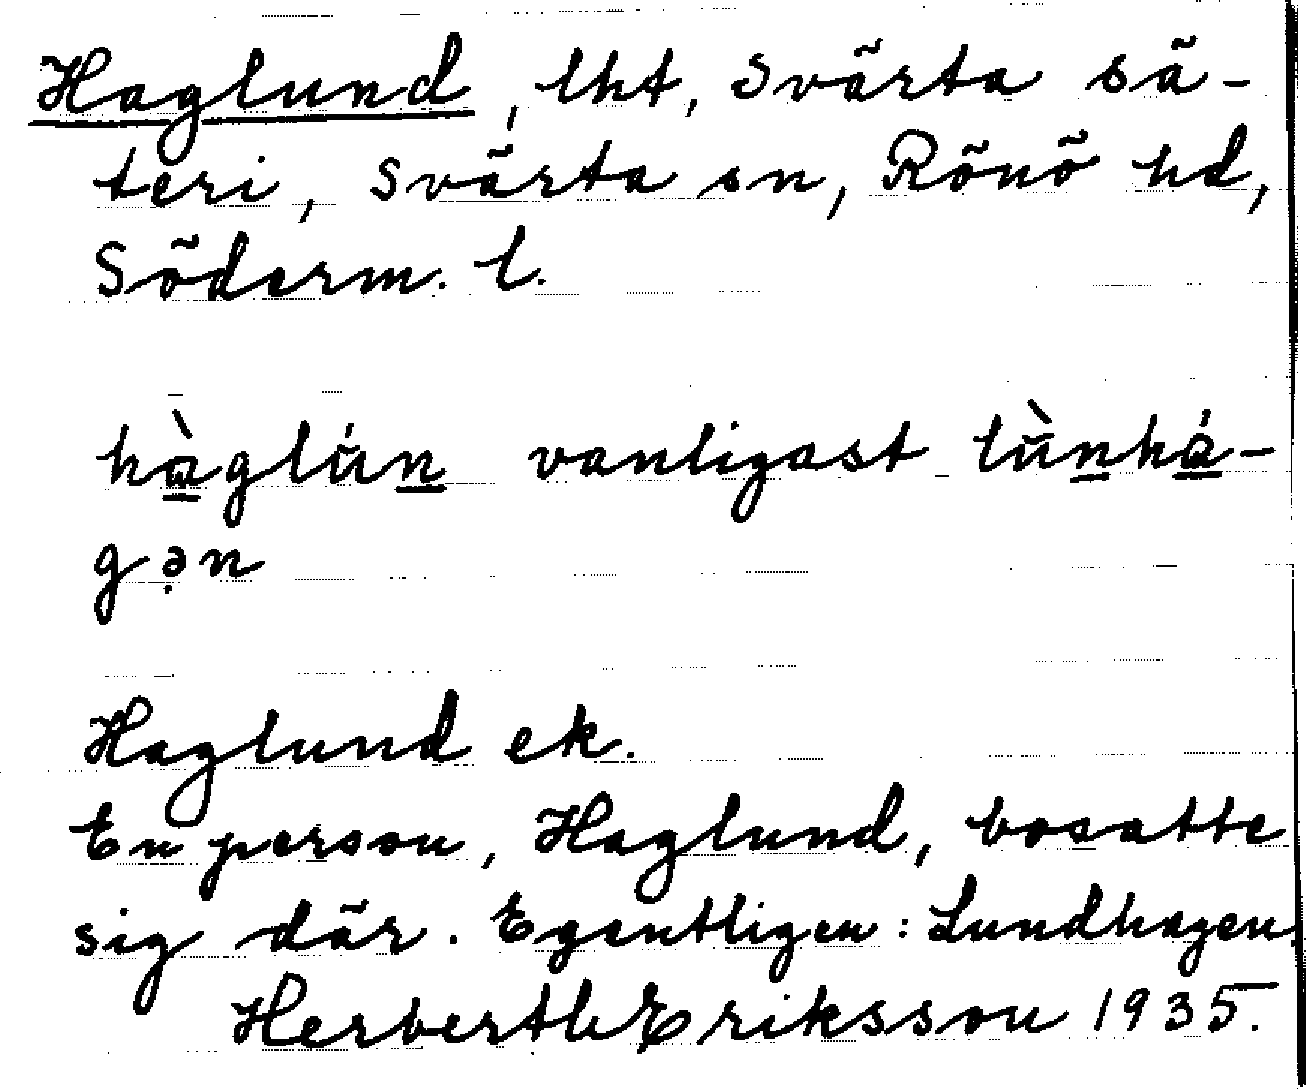 Haglund, lht, Svärta sä-
teri, Svärta sn, Rönö hd,
Söderm. l.
hàglún vanligast lùnhá-
gən
Haglund ek.
En person, Haglund, bosatte
sig där. Egentligen: Lundhagen
Herbert Eriksson 1935.